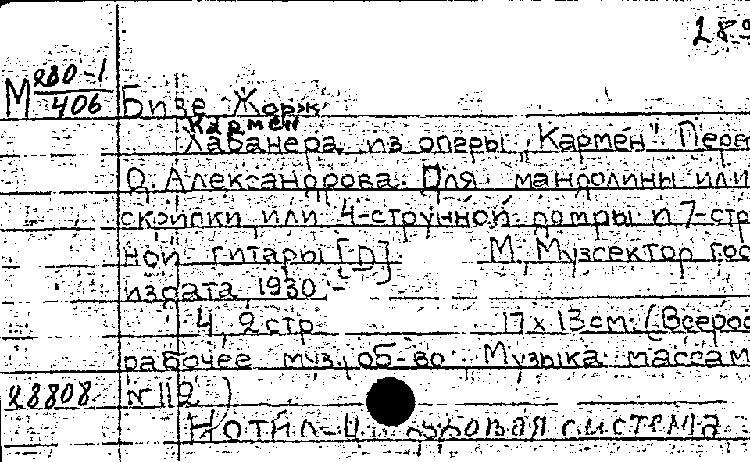 289
М 280-1/406
Бизе Жорж
Кармен
Хабанера из оперы "Кармен". Пере
О. Александрова. Для мандолины или
скрипки или 4-струнной домры и 7-стр
ной гитары [D] М, Музсектор Гос
издата 1930 -
4, 2 стр. 17 х 13 см. (Всерос
рабочее муз. об-во. Музыка массам
28808 № 112)
Нотн.-ц система